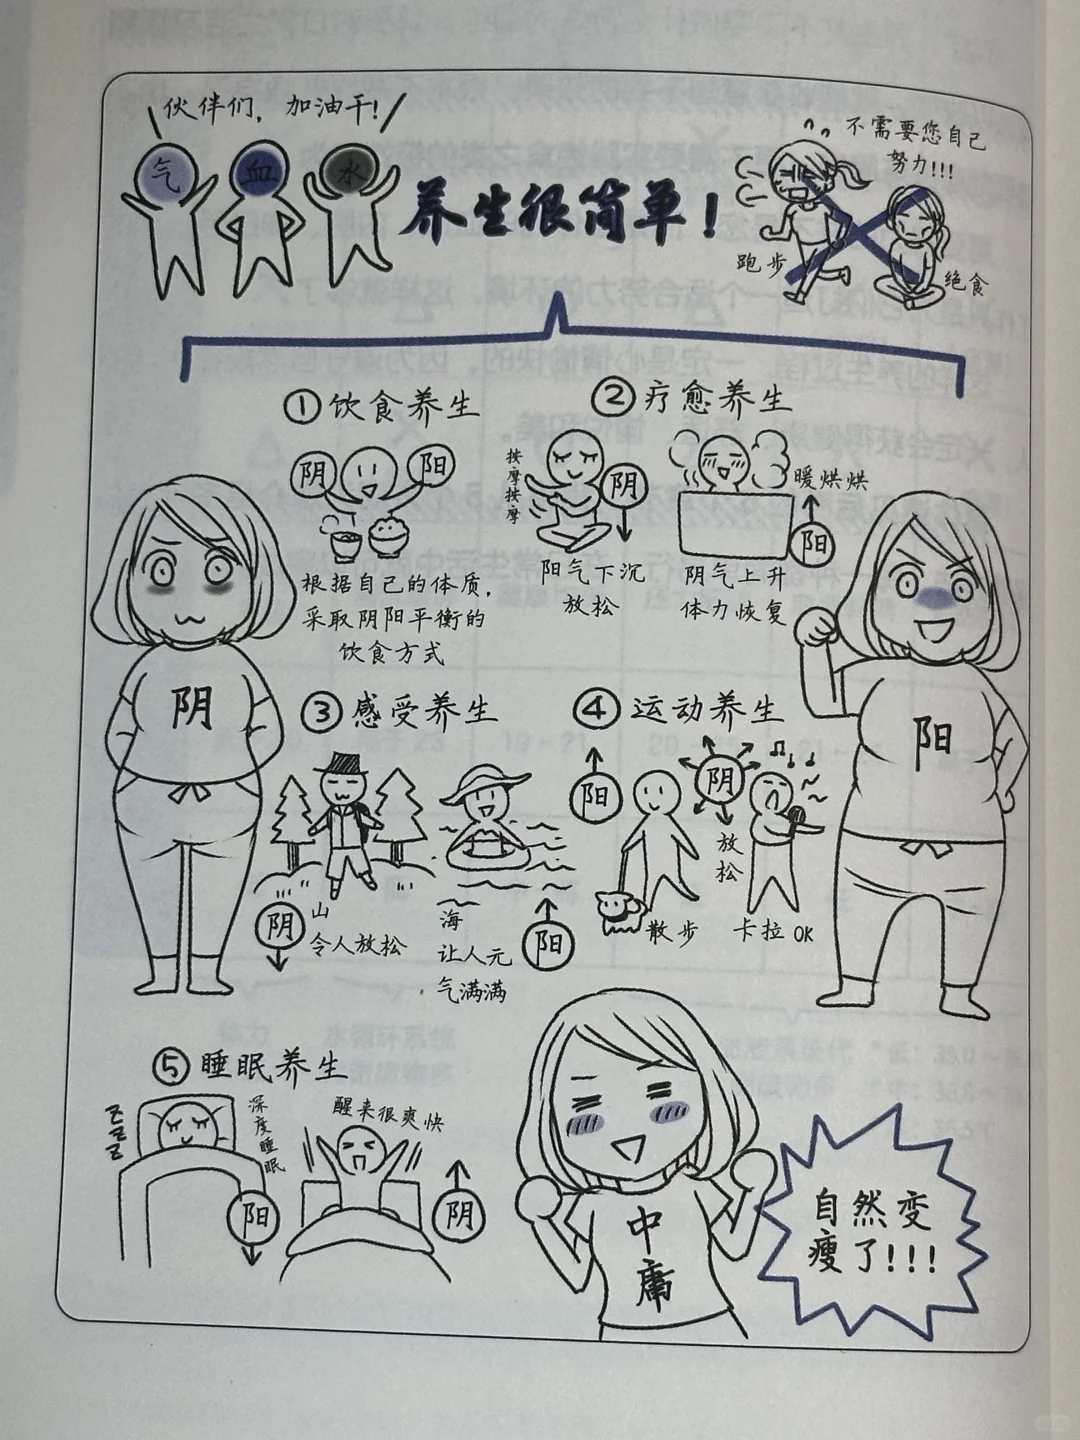 伙伴们，加油干!
气
血
水
养生很简单！
不需要您自己
努力!!!
跑步
绝食
①饮食养生
阴
阳
根据自己的体质，
采取阴阳平衡的
饮食方式
②疗愈养生
按摩按摩
阴
阳气下沉
放松
暖烘烘
阳
阴气上升
体力恢复
阴
阳
③感受养生
阴
山
令人放松
海
让人元
气满满
阳
④运动养生
阳
散步
阴
放松
卡拉OK
⑤睡眠养生
zzz
深度睡眠
阳
醒来很爽快
阴
中庸
自然变
瘦了!!!